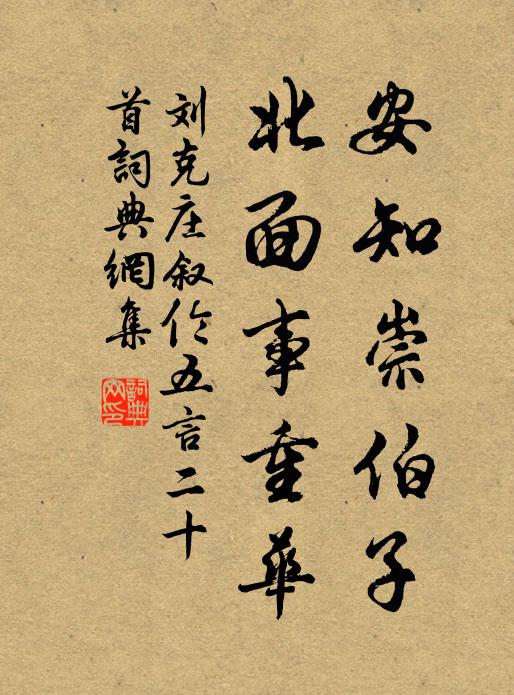 安知崇伯子
北面事重華
刘克庄叙伦五言二十
首詞典網集
詞典網印